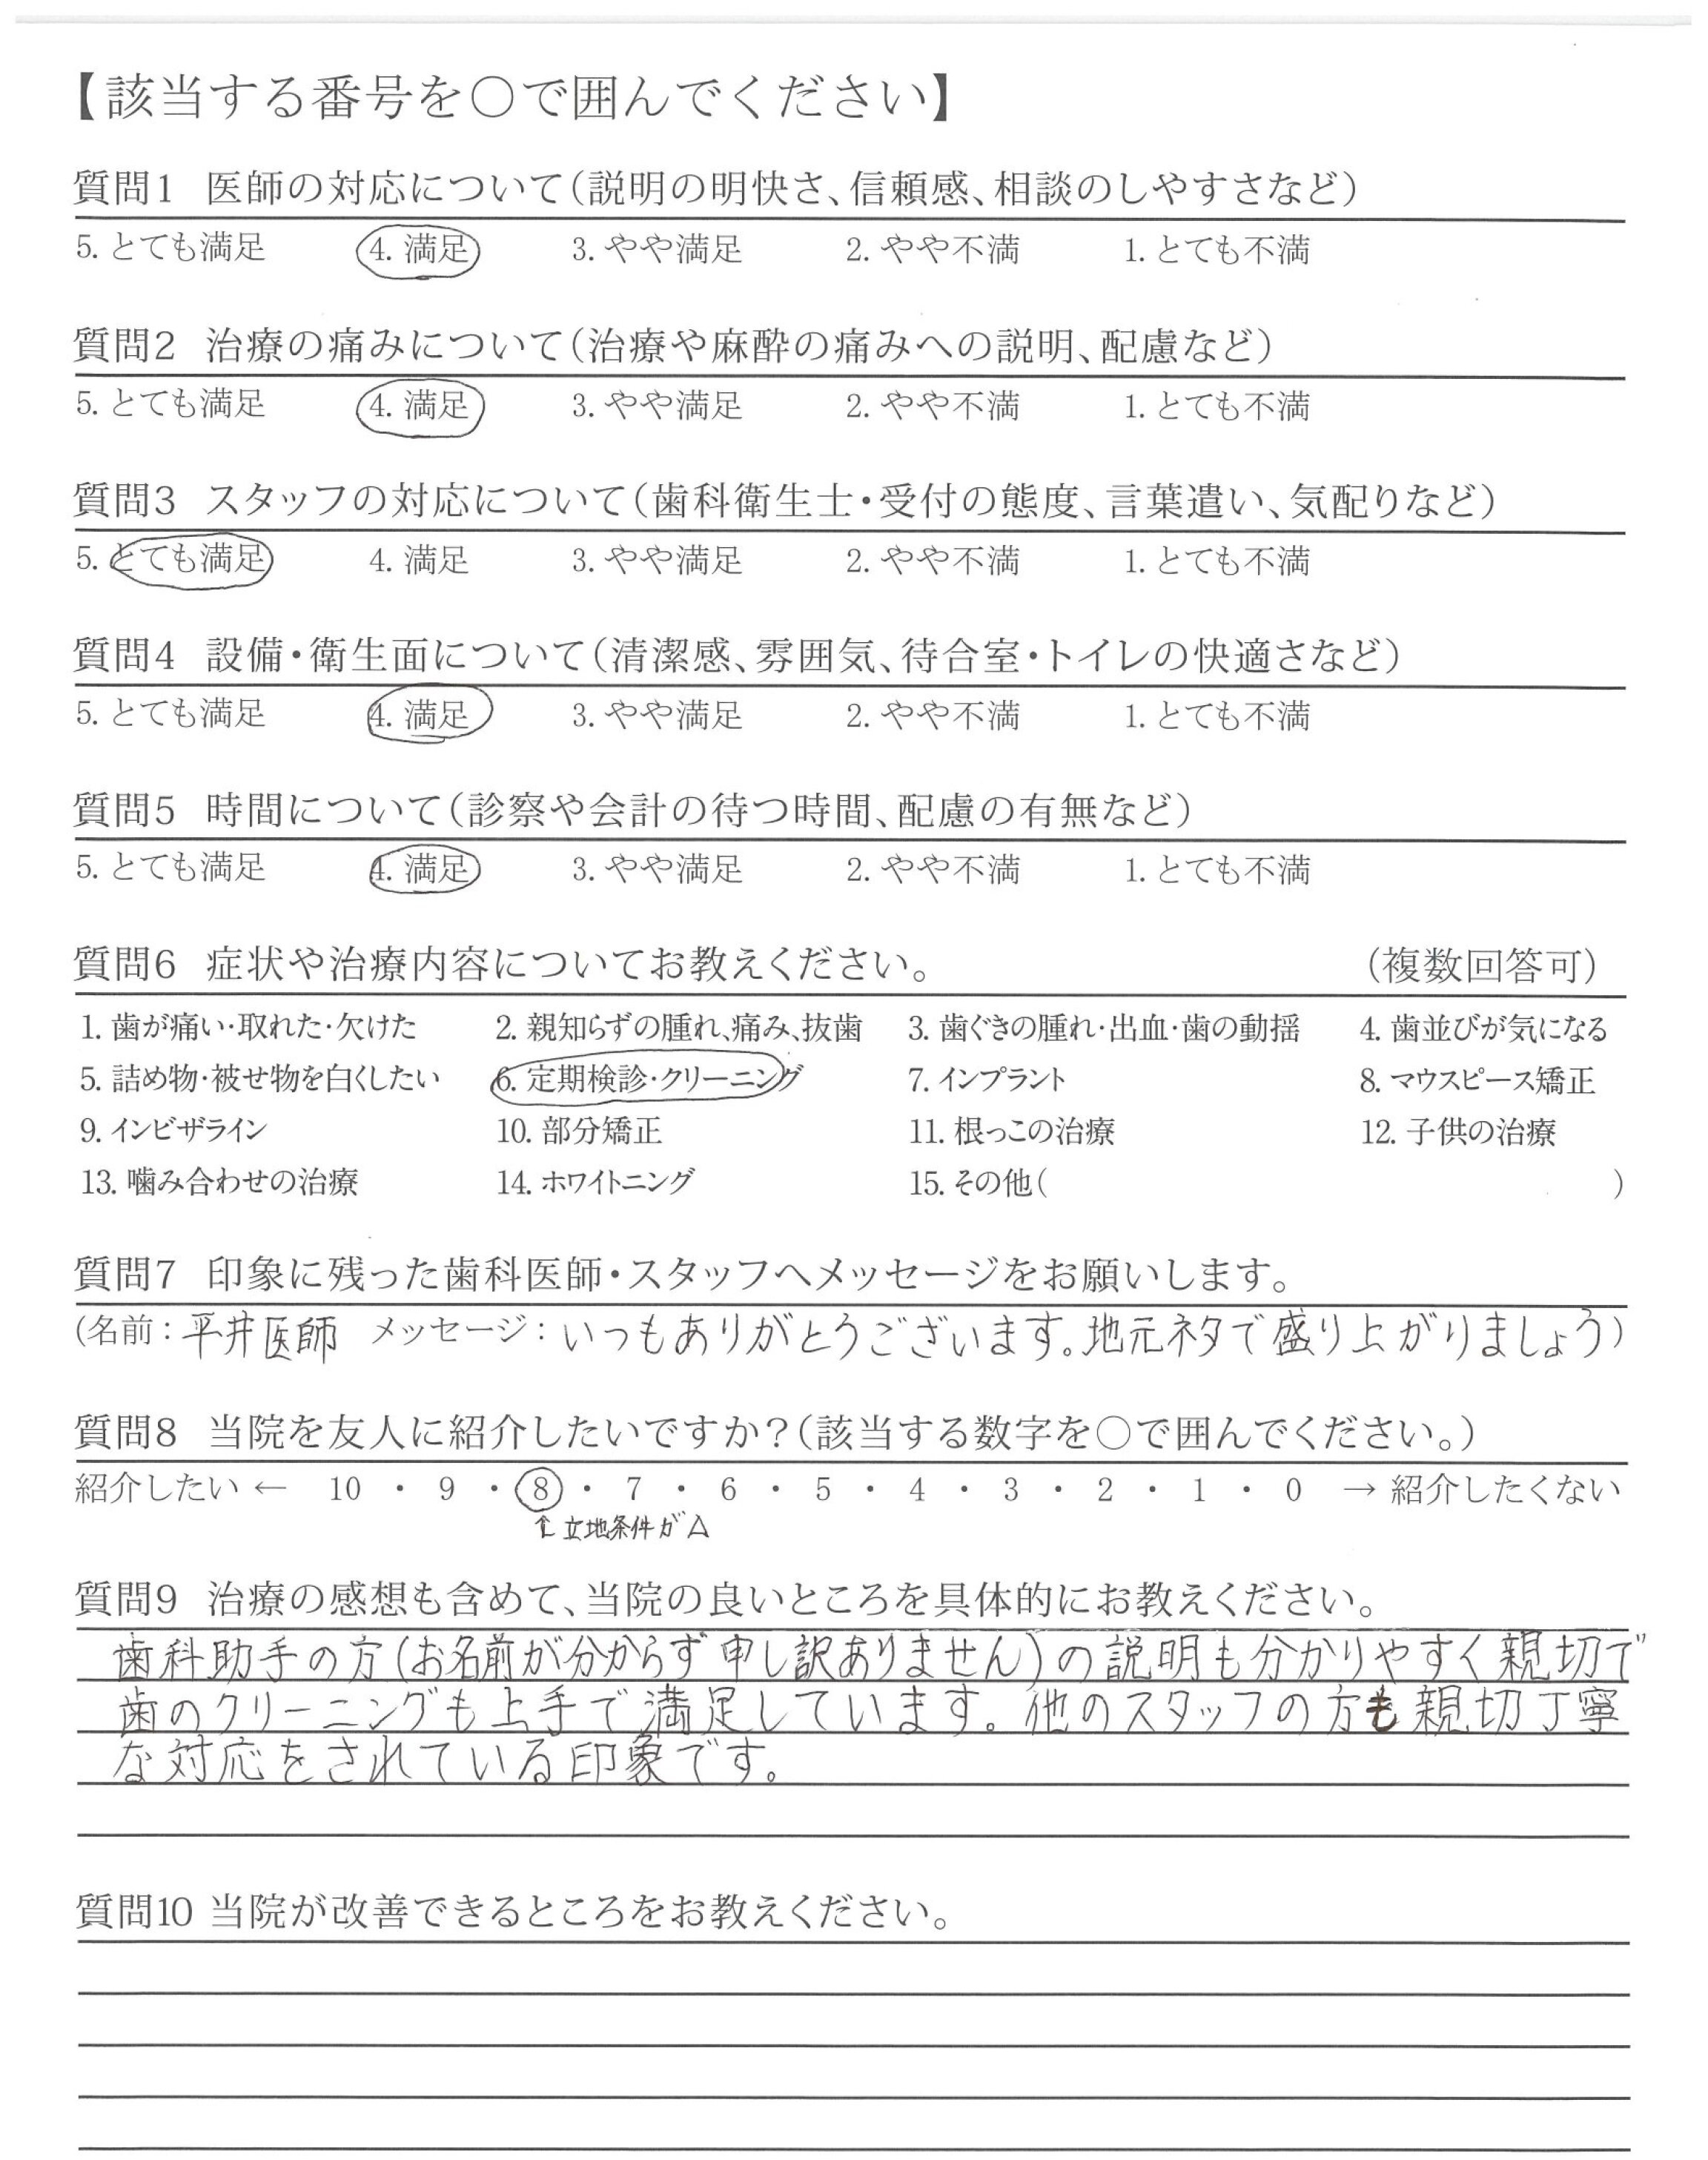 【該当する番号を○で囲んでください】
質問1 医師の対応について(説明の明快さ、信頼感、相談のしやすさなど)
5. とても満足 4. 満足 3. やや満足 2. やや不満 1. とても不満
質問2 治療の痛みについて(治療や麻酔の痛みへの説明、配慮など)
5. とても満足 4. 満足 3. やや満足 2. やや不満 1. とても不満
質問3 スタッフの対応について(歯科衛生士・受付の態度、言葉遣い、気配りなど)
5. とても満足 4. 満足 3. やや満足 2. やや不満 1. とても不満
質問4 設備・衛生面について(清潔感、雰囲気、待合室・トイレの快適さなど)
5. とても満足 4. 満足 3. やや満足 2. やや不満 1. とても不満
質問5 時間について(診察や会計の待つ時間、配慮の有無など)
5. とても満足 4. 満足 3. やや満足 2. やや不満 1. とても不満
質問6 症状や治療内容についてお教えください。 (複数回答可)
1. 歯が痛い・取れた・欠けた 2. 親知らずの腫れ、痛み、抜歯 3. 歯ぐきの腫れ・出血・歯の動揺 4. 歯並びが気になる
5. 詰め物・被せ物を白くしたい 6. 定期検診・クリーニング 7. インプラント 8. マウスピース矯正
9. インビザライン 10. 部分矯正 11. 根っこの治療 12. 子供の治療
13. 噛み合わせの治療 14. ホワイトニング 15. その他( )
質問7 印象に残った歯科医師・スタッフへメッセージをお願いします。
(名前：平井医師 メッセージ：いつもありがとうございます。地元ネタで盛り上がりましょう)
質問8 当院を友人に紹介したいですか？(該当する数字を○で囲んでください。)
紹介したい ← 10 ・ 9 ・ 8 ・ 7 ・ 6 ・ 5 ・ 4 ・ 3 ・ 2 ・ 1 ・ 0 → 紹介したくない
↑立地条件が△
質問9 治療の感想も含めて、当院の良いところを具体的にお教えください。
歯科助手の方(お名前が分からず申し訳ありません)の説明も分かりやすく親切で
歯のクリーニングも上手で満足しています。他のスタッフの方も親切丁寧
な対応をされている印象です。
質問10 当院が改善できるところをお教えください。